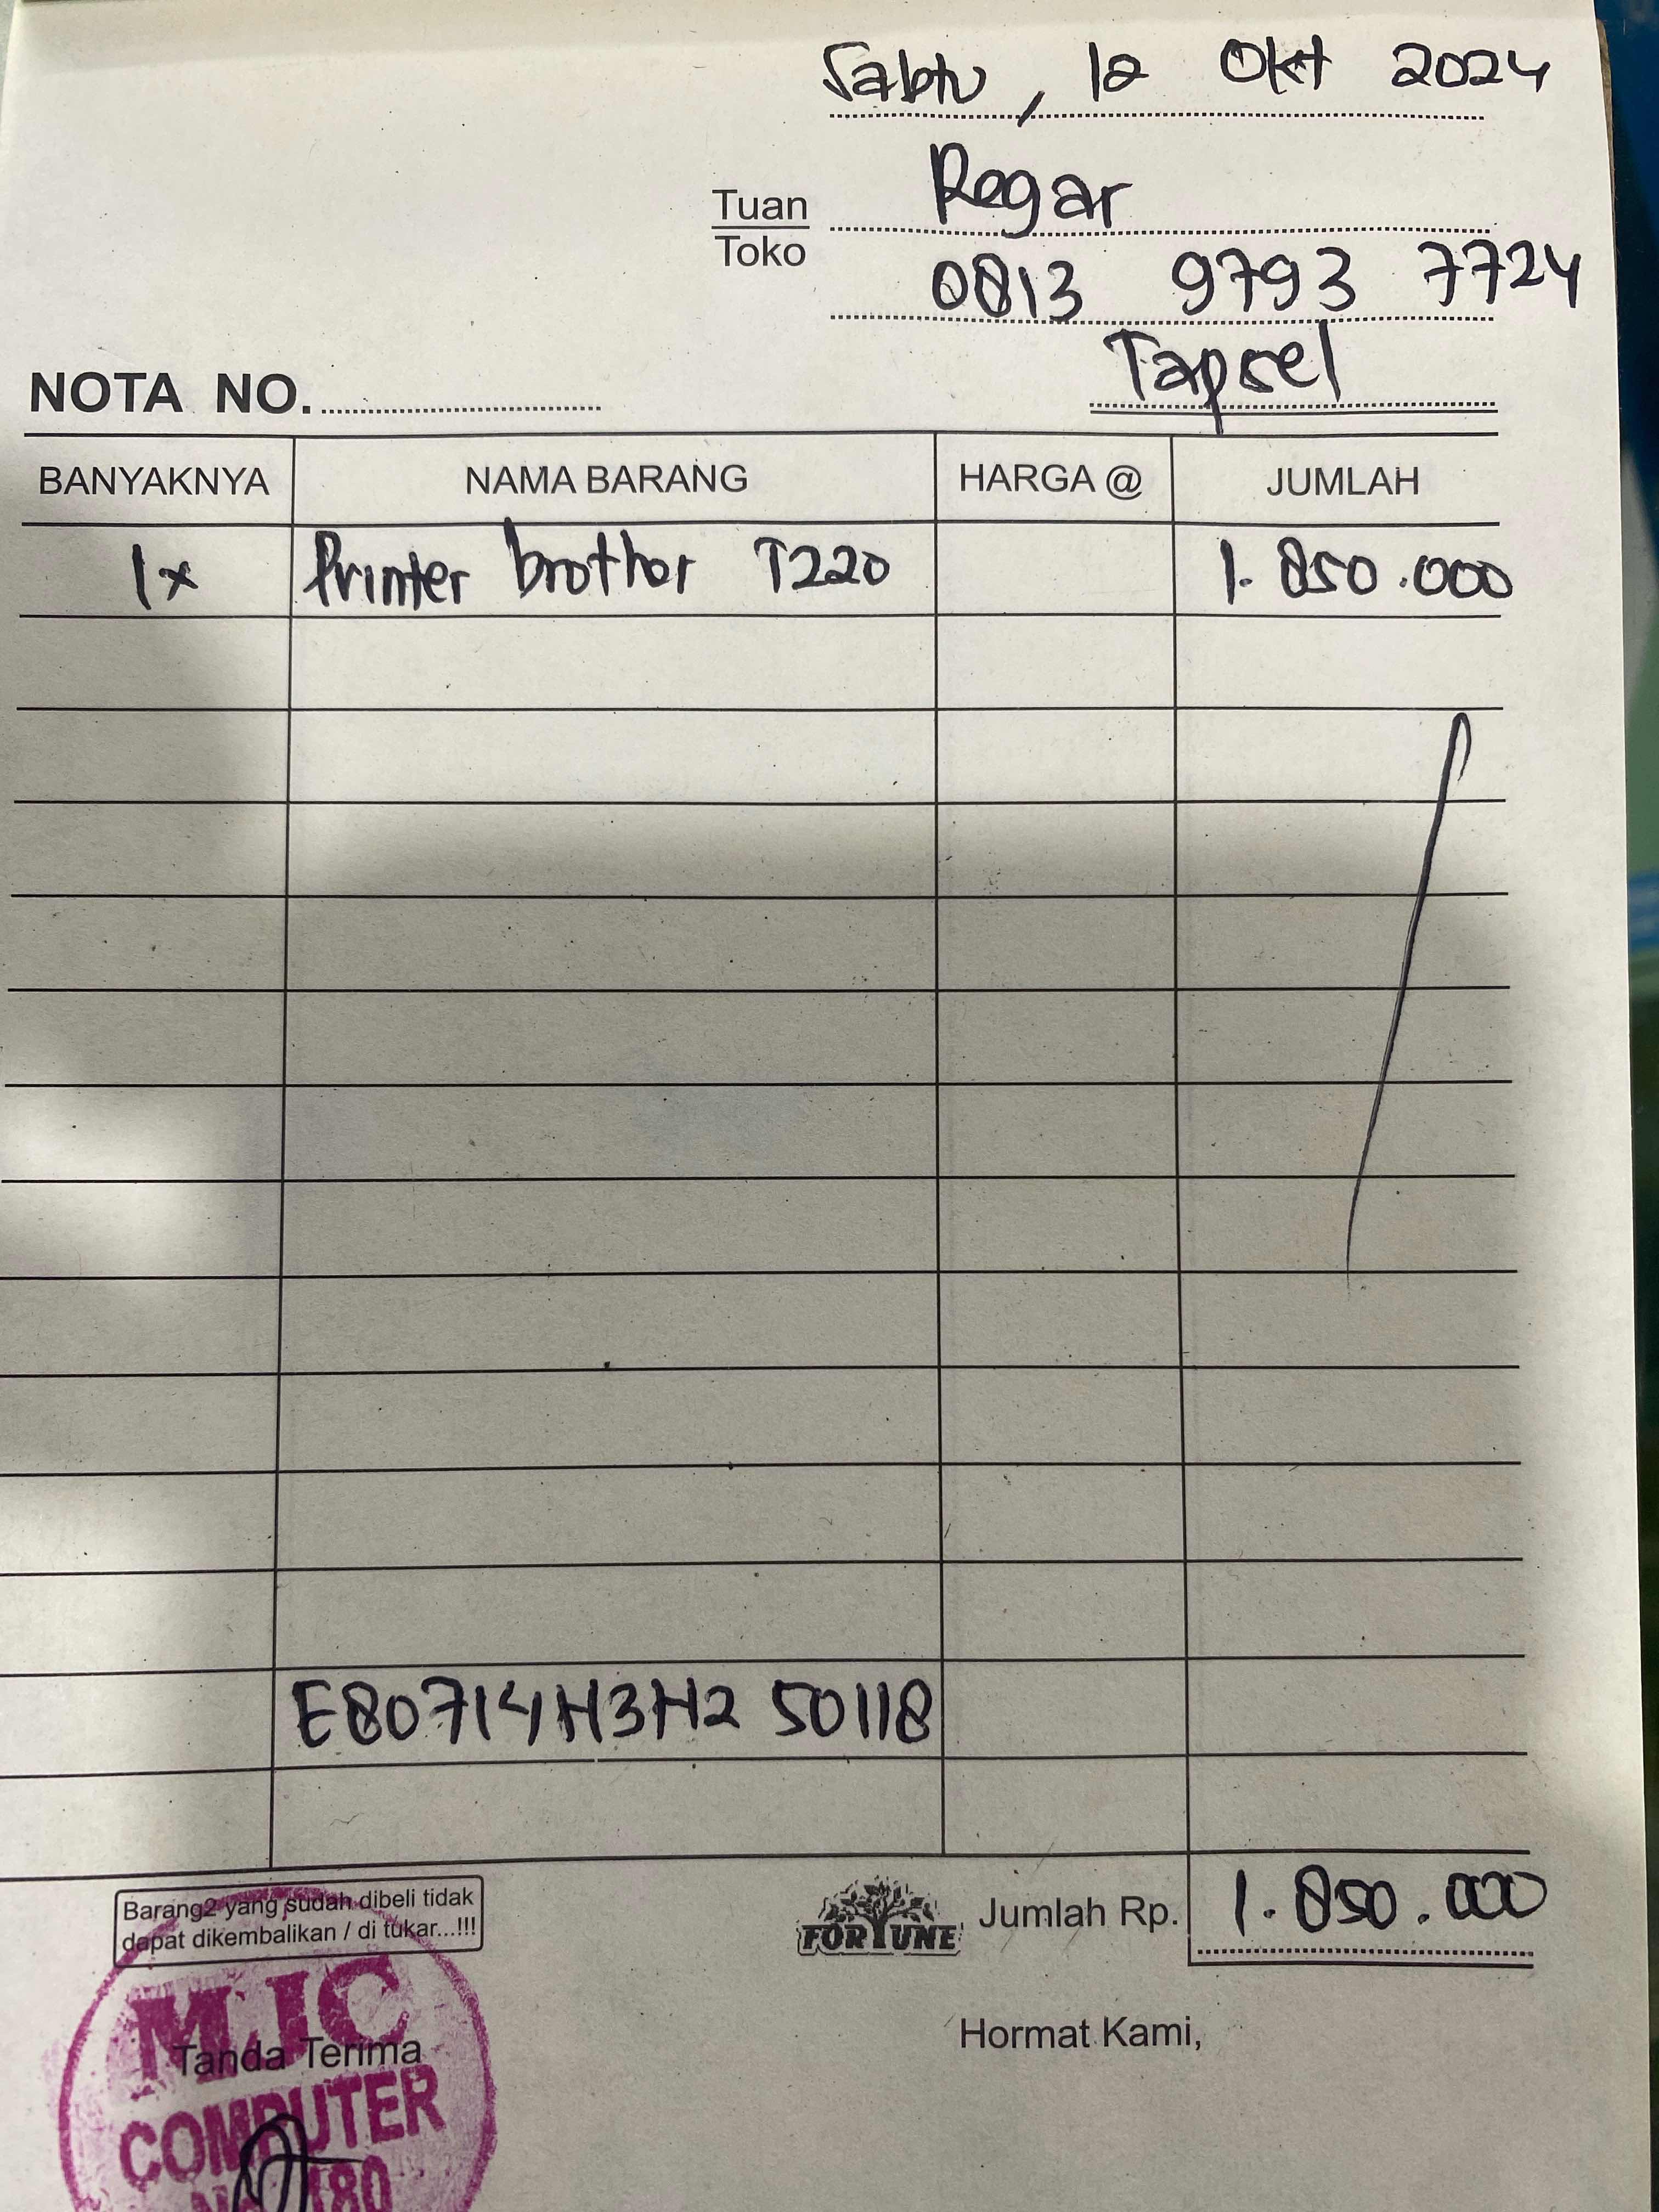 Sabtu, 12 Okt 2024
Tuan
Toko
Regar
0813 9793 7724
Tapsel
NOTA NO.
BANYAKNYA NAMA BARANG HARGA @ JUMLAH
1x Printer brother T220 1.850.000
E80714H3H2 50118
Barang2 yang sudah dibeli tidak
dapat dikembalikan / di tukar...!!!
FORTUNE Jumlah Rp. 1.850.000
Tanda Terima Hormat Kami,
MJC
COMPUTER
180